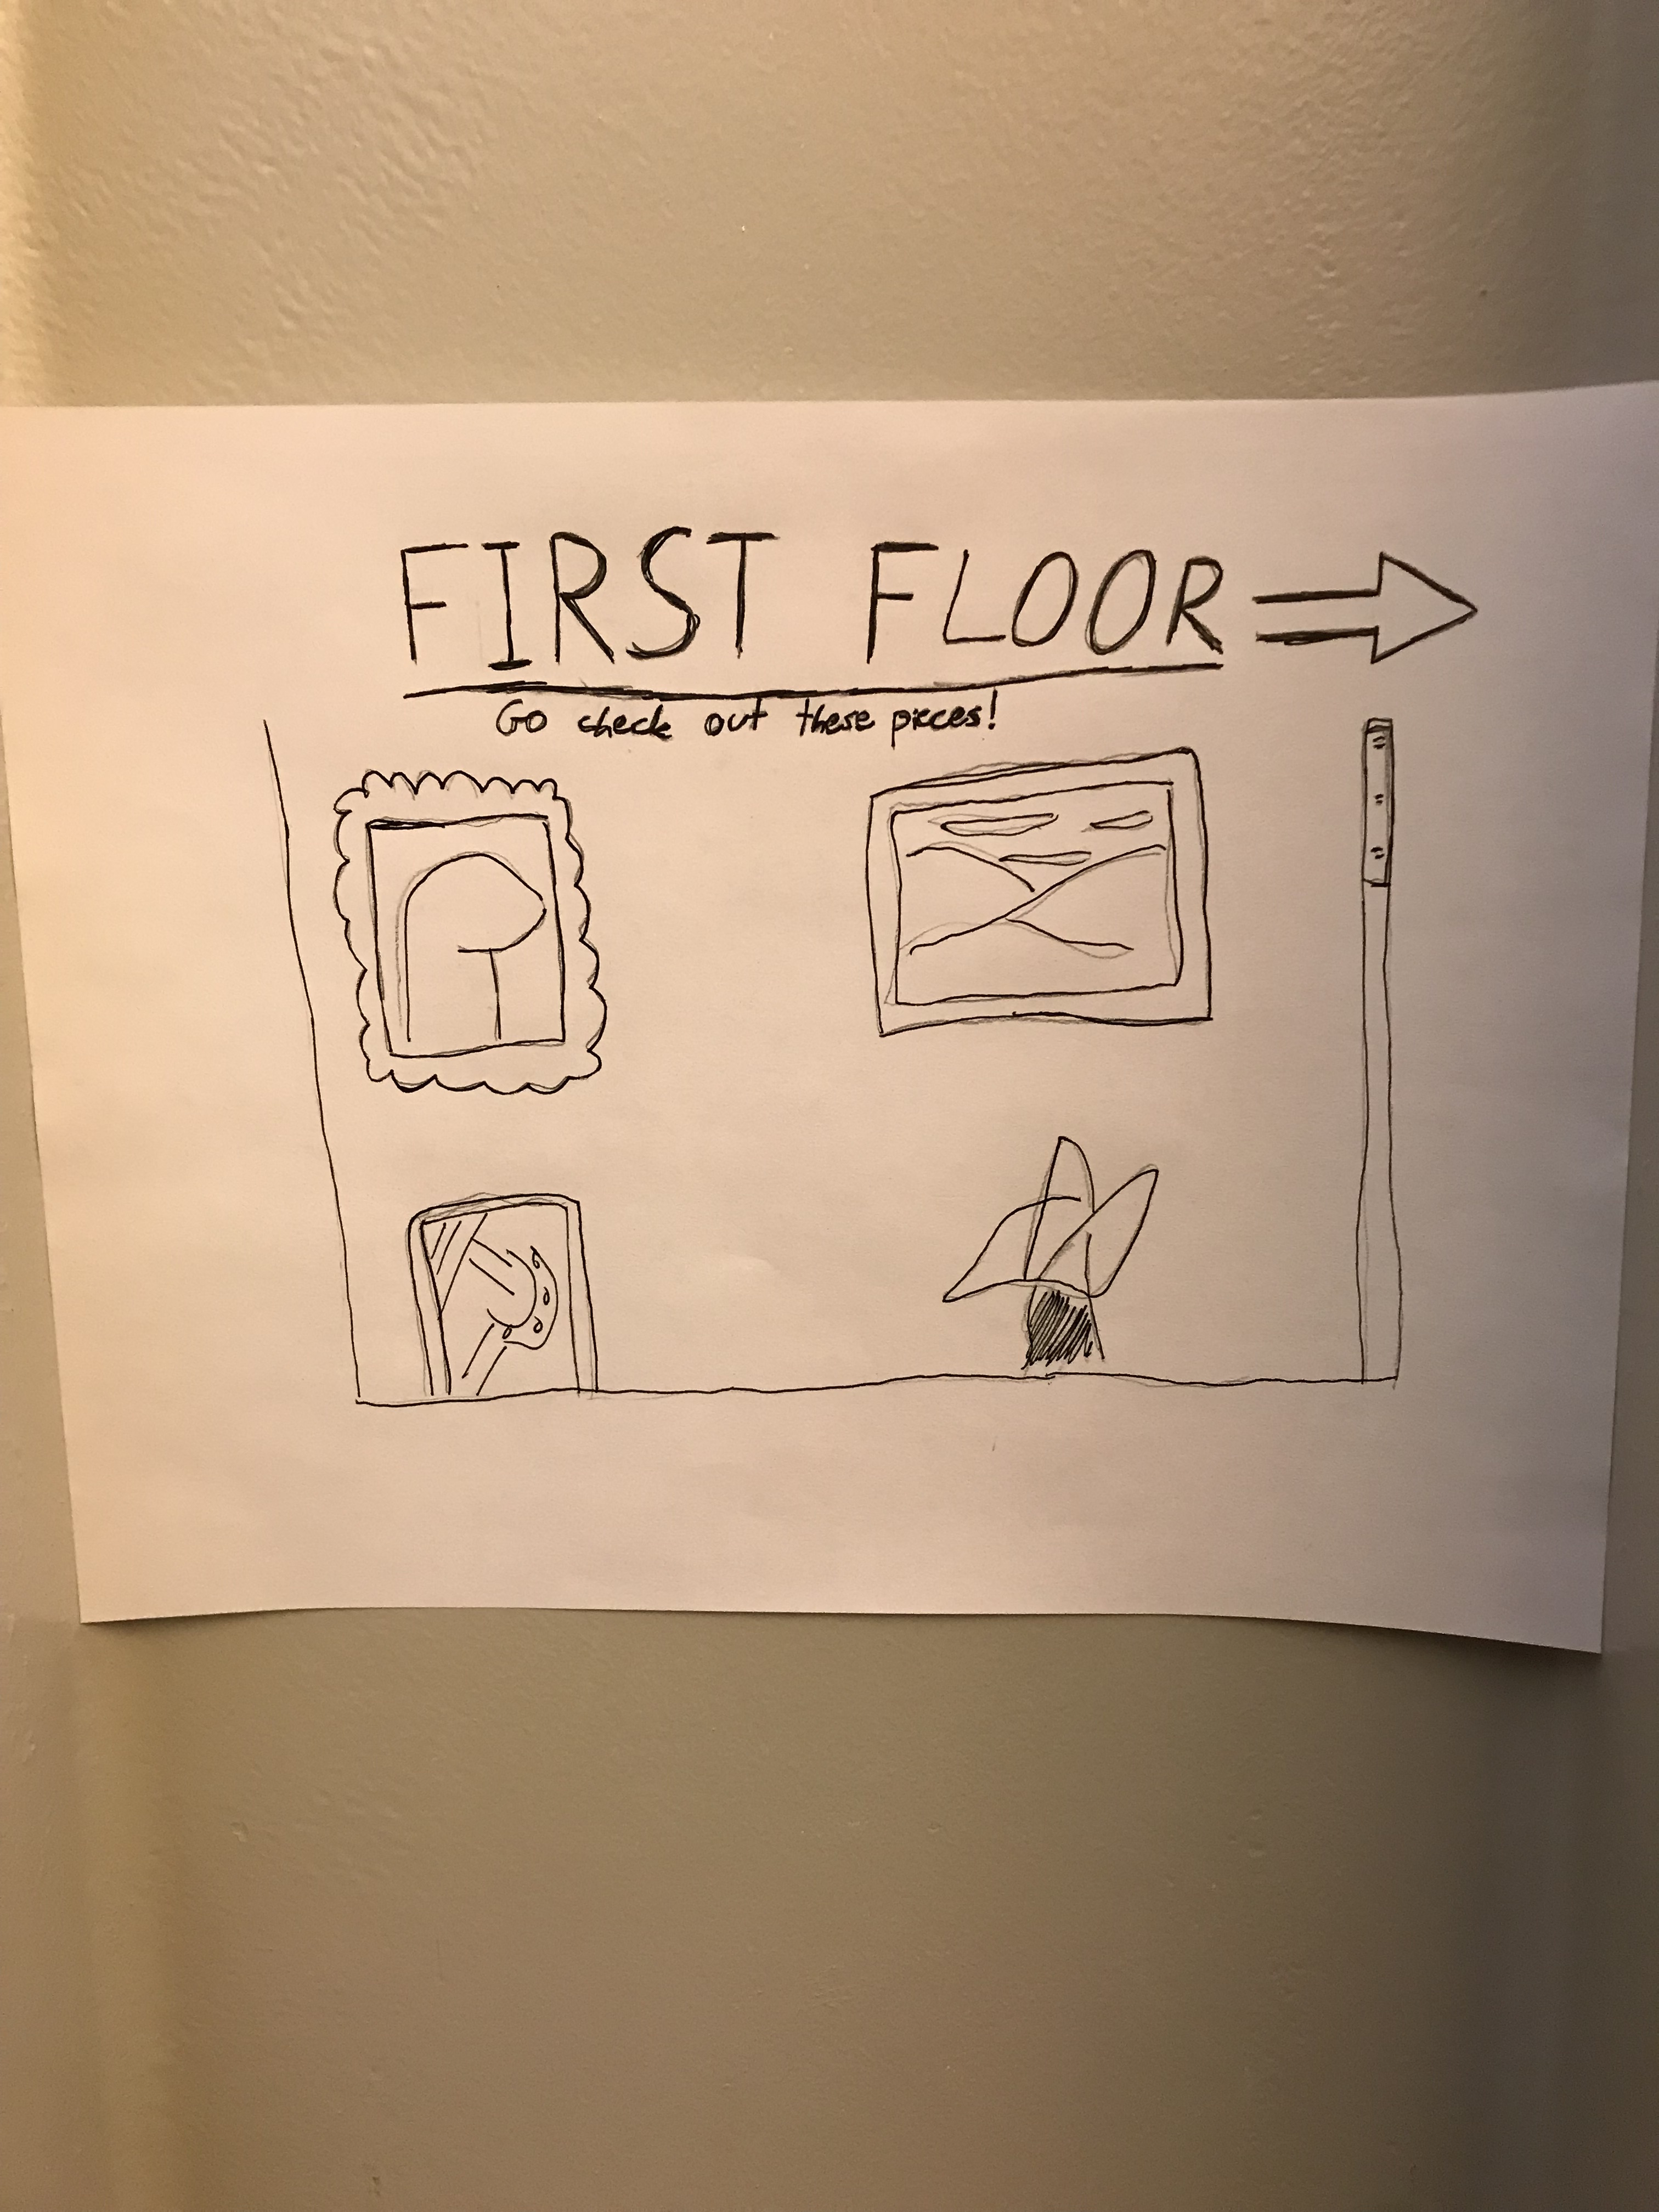 FIRST FLOOR
Go check out these pieces!